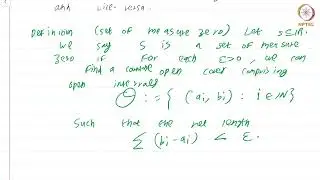 and vice-versa.
NPTEL
Definition (set of measure zero) Let S⊆ℝ.
We say S is a set of measure
zero if for each ε>0, we can
find a countable open cover comprising
open intervals
Θ := { (ai, bi) : i ∈ ℕ }
Such that the net length
∑ (bi - ai) < ε.